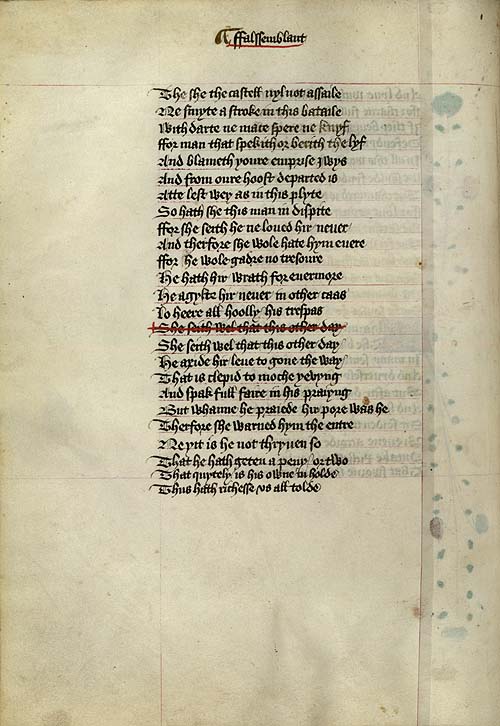 ffalssemblant
The she the castell nyl not assaile
Ne smyte a stroke in this bataile
With darte ne mace spere ne knyf
ffor man that spekith or berith the lyf
And blameth youre emprise ywys
And from oure hoost departed is
Atte lest wey as in this plyte
So hath she this man in dispite
ffor she seith he ne loved hir neuer
And therfore she wole hate hym euere
ffor he wole gadre no tresoure
He hath hir wrath for euermore
He agylte hir neuer in other caas
Lo heere all hoolly his trespas
She seith wel that this other day
She seith wel that this other day
He axide hir leue to gone the way
That is clepid to moche yevyng
And spak full faire in his praiyng
But whanne he praiede hir pore was he
Therfore she warned hym the entre
Ne yit is he not thryuen so
That he hath geten a peny or two
That quytely is his owne in holde
Thus hath richesse vs all tolde